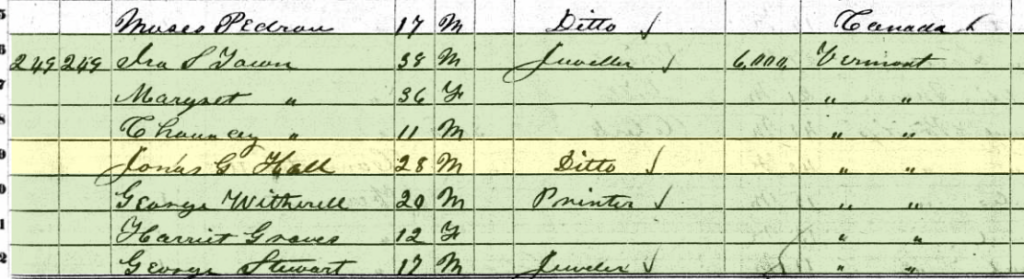 Moses Pedrow 17 M Ditto Canada
249 249 Ira S Town 38 M Jeweller 6,000 Vermont
Margret " 36 F " "
Chauncey " 11 M " "
Jonas G Hall 28 M Ditto " "
George Witherell 20 M Printer " "
Harriet Graves 12 F " "
George Stewart 17 M Jeweler " "